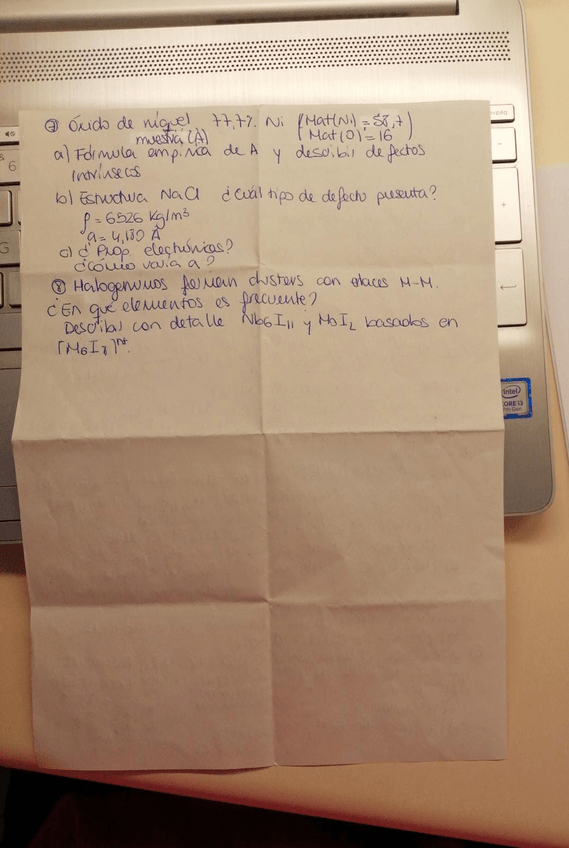 ⑦ Óxido de níquel 77,7% Ni (Mat(Ni)=58,7
muestra (A) Mat(O)=16)
a) Fórmula empírica de A y describir defectos
intrínsecos
b) Estructura NaCl ¿Cuál tipo de defecto presenta?
ρ = 6526 kg/m³
a = 4,180 Å
c) ¿Prop electrónicas?
¿Cómo varía a?
⑧ Halogenuros forman clusters con enlaces M-M.
¿En qué elementos es frecuente?
Describir con detalle Nb6I11 y MoI2 basados en
[M6I8]ⁿ⁺.
intel
CORE i3